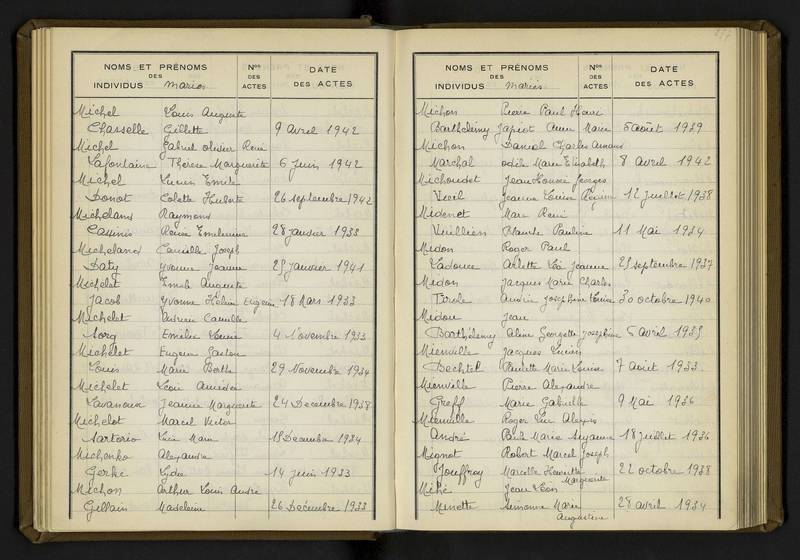 NOMS ET PRÉNOMS
DES
INDIVIDUS Mariés
Nos
DES
ACTES
DATE
DES ACTES
Michel Louis Auguste
Chasselle Gillette 9 avril 1942
Michel Gabriel Olivier René
Lafontaine Thérèse Marguerite 6 Juin 1942
Michel Lucien Emile
Donot Colette Huberte 26 septembre 1942
Micheland Raymond
Cassinis Renée Emilienne 28 janvier 1933
Micheland Camille Joseph
Daty Yvonne Jeanne 25 janvier 1941
Michelet Emile Auguste
Jacob Yvonne Hélène Eugénie 18 Mars 1933
Michelet Adrien Camille
Sorg Emilie Louise 4 Novembre 1933
Michelet Eugène Gaston
Louis Marie Berthe 29 Novembre 1934
Michelet Léon Amédée
Lavanoux Jeanne Marguerite 24 Décembre 1938
Michelot Marcel Victor
Sartorio Marie Décembre 1934
Michenko Alexandre
Gerke Lydie 14 Juin 1933
Michon Arthur Louis André
Gillain Madeleine 26 Décembre 1933
NOMS ET PRÉNOMS
DES
INDIVIDUS Mariés
Nos
DES
ACTES
DATE
DES ACTES
Michon Pierre Paul Henri
Barthélémy Japiot Anne Marie 5 août 1939
Michon Daniel Charles Armand
Marchal Odile Marie Elisabeth 8 avril 1942
Michoudet Jean François Georges
Viveil Jeanne Louise Régine 12 Juillet 1938
Midenet Marc René
Vuillien Blanche Pauline 11 Mai 1934
Midon Roger Paul
Ladouce Arlette Léa Jeanne 25 septembre 1937
Midon Jacques Marie Charles
Tirole Andrée Joséphine Louise 30 octobre 1940
Midou Jean
Barthélémy Aline Georgette Joséphine 6 avril 1935
Mienville Jacques Lucien
Bechtel Paulette Marie Louise 7 août 1933
Mienville Pierre Alexandre
Greff Marie Gabrielle 9 Mai 1936
Mienville Roger Luc Alexis
André Paule Marie Suzanne 18 Juillet 1936
Mignot Robert Marcel Joseph
Jouffroy Marcelle Henriette Marguerite 22 octobre 1938
Jean Léon
Minette Simonne Marie Augustine 28 avril 1934